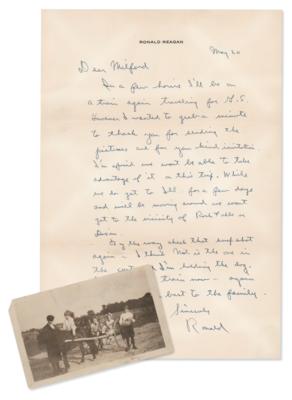 RONALD REAGAN
May 20
Dear Milford
In a few hours I'll be on
a train again traveling for G.E.
However I wanted to grab a minute
to thank you for sending the
pictures and for your kind invitation
I'm afraid we wont be able to take
advantage of it on this trip. While
we do get to Ill. for a few days
and we'll be moving around we wont
get to the vicinity of Rock Falls or
Dixon.
By the way check that snap shot
again – I think Neil is the one in
the cart and I'm holding the dog.
train now – again
best to the family.
Sincerely
Ronald